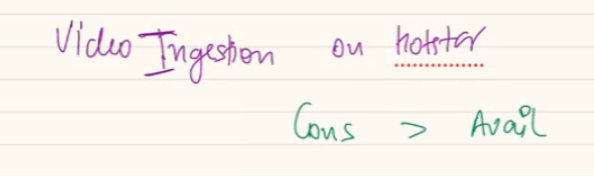 Video Ingestion on hotstar
Cons > Avail